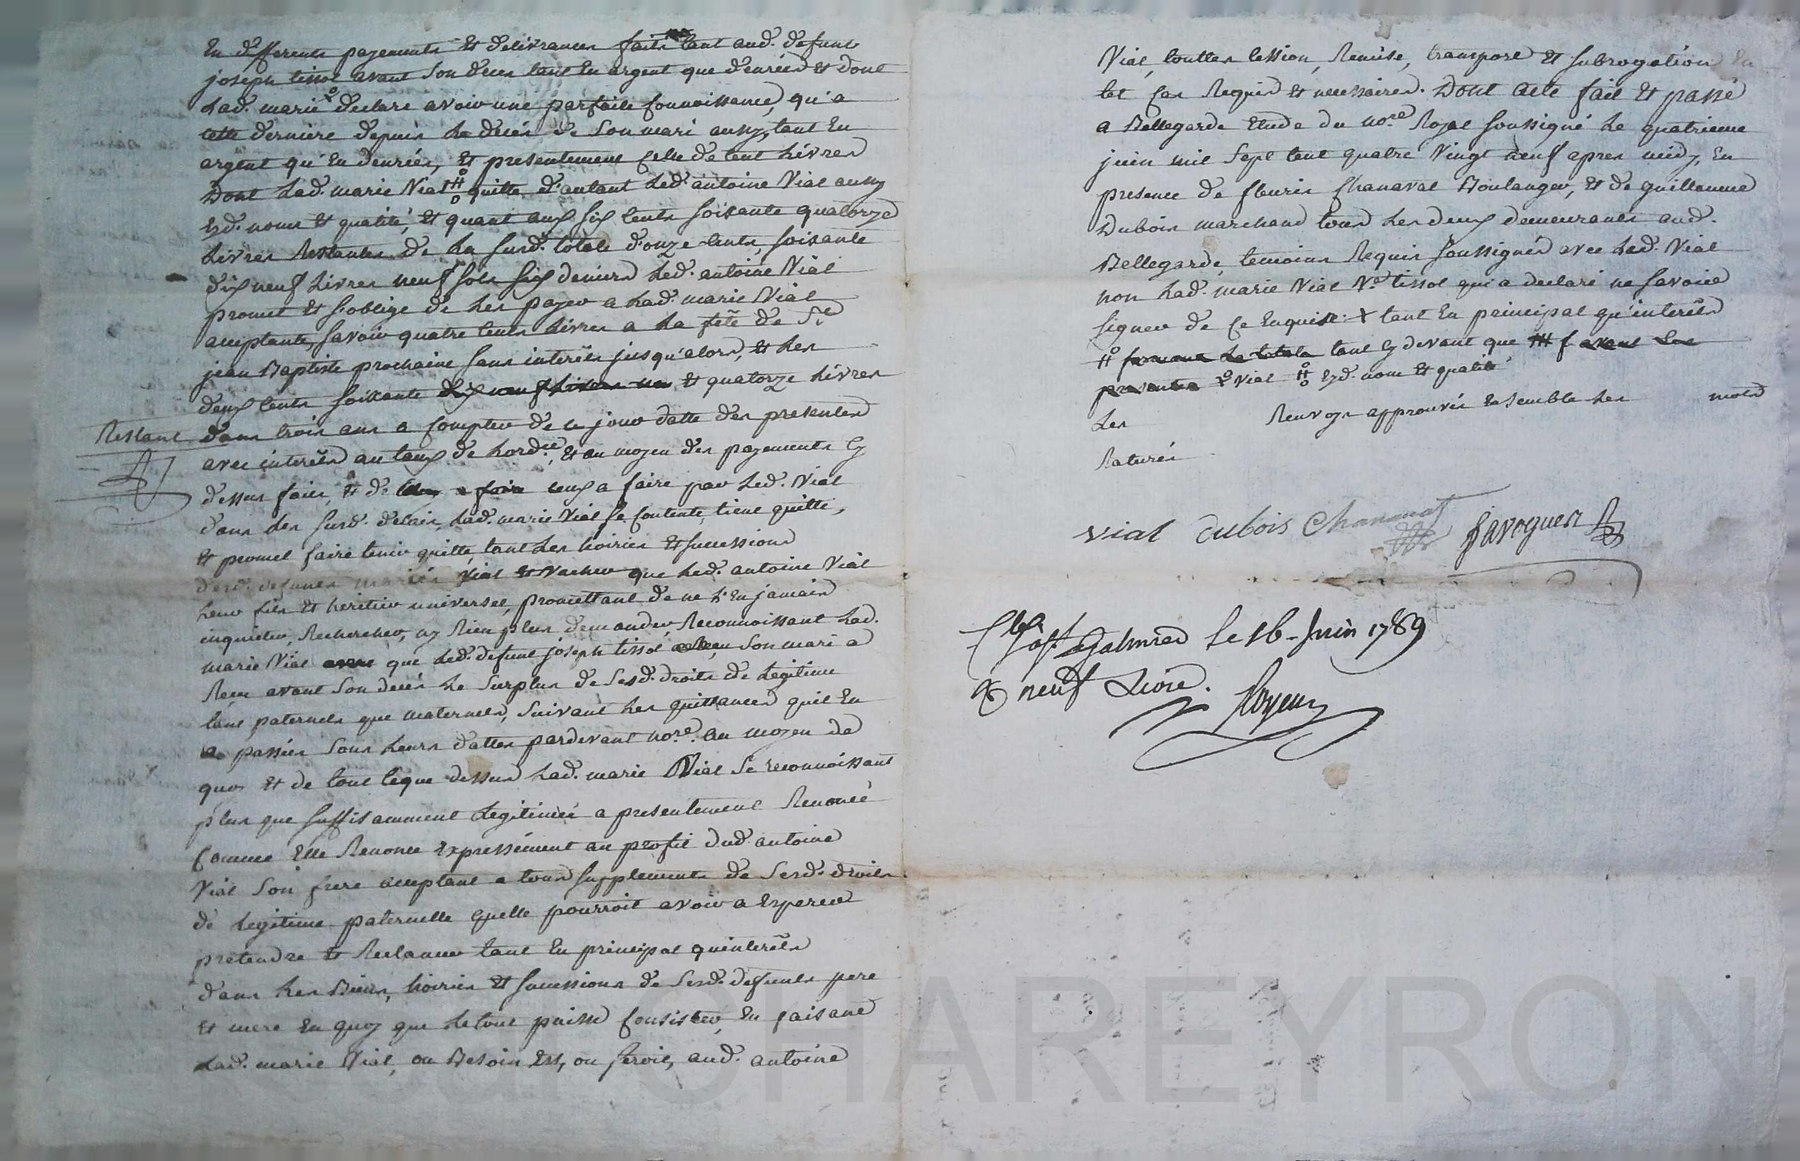 En differents payements et delivrances faits tant aud. defunt
joseph tissot avant son deces tant En argent que denrées et dont
Lad. marie declare avoir une parfaite connoissance, qu'a
cette derniere depuis Le décés de son mari aussy, tant En
argent qu'En denrées, et presentement celle de cent Livres
Dont Lad. marie Vial quitte d'autant Led. antoine Vial aussy
Esd. noms et qualité, et quant aux six cents soixante quatorze
Livres Restantes de La susd. totale d'onze cents soixante
dix neuf Livres neuf sols six deniers Led. antoine Vial
promet et s'oblige de Les payer a Lad. marie Vial
acceptante, savoir quatre cents Livres a La fête de St
jean Baptiste prochaine sans interêts jusqu'alors, et Les
deux cents soixante dix neuf Livres et quatorze Livres
Restant
dans trois ans a compter de ce jour datte des presentes
avec interêts au taux de Lordre, et au moyen des payements cy
dessus faits, et de ceux a faire par Led. Vial
dans les susd. delais, Lad. marie Vial se contente, tient quitte,
et promet faire tenir quitte, tant Les hoiries et successions
desd. defunts mariés Vial et Vacher que Led. antoine Vial
Leur fils et heritier universel, promettant de ne L'En jamais
inquieter, Rechercher, ny Rien plus demander, Reconnoissant Lad.
marie Vial que Led. defunt joseph tissot son mari a
Reçu avant son decés Le surplus de sesd. droits de Legitime
tant paternels que maternels, suivant Les quittances qu'il En
a passées sous Leurs dattes pardevant nore. au moyen de
quoi et de tout ceque dessus Lad. marie Vial se reconnoissant
plus que suffisamment Legitimée a presentement Renoncé
comme Elle Renonce Expressément au profit dud. antoine
Vial son frere acceptant a tous supplements de sesd. droits
de Legitime paternelle quelle pourroit avoir a Esperer
pretendre et Reclamer tant En principal quinterêts
dans Les Biens, hoiries et successions de sesd. defunts pere
et mere En quoy que Letout puisse consister, En faisant
Lad. marie Vial, ou Besoin Est, ou seroit, aud. antoine
Vial, touttes Cession, Remise, transport et subrogation En
tel cas Requis et necessaires. Dont acte fait et passé
a Bellegarde Etude du nore Royal soussigné Le quatrieme
juin mil sept cent quatre Vingt neuf apres midy, En
presence de fleurie Chanavat Boulanger, et de guillaume
Dubois marchand tous Les deux demeurants aud.
Bellegarde, temoins Requis soussignés avec Led. Vial
non Lad. marie Vial Ve tissot qui a declaré ne savoir
signer de ce Enquise. X tant En principal qu'interêts
tant cy devant que
Vial Esd. nom et qualité
Les Renvoys approuvés Ensemble Les mots
Raturés
Vial Dubois Chanavat favoguer
Galmier le 16 Juin 1789
neuf Livre.
CHAREYRON